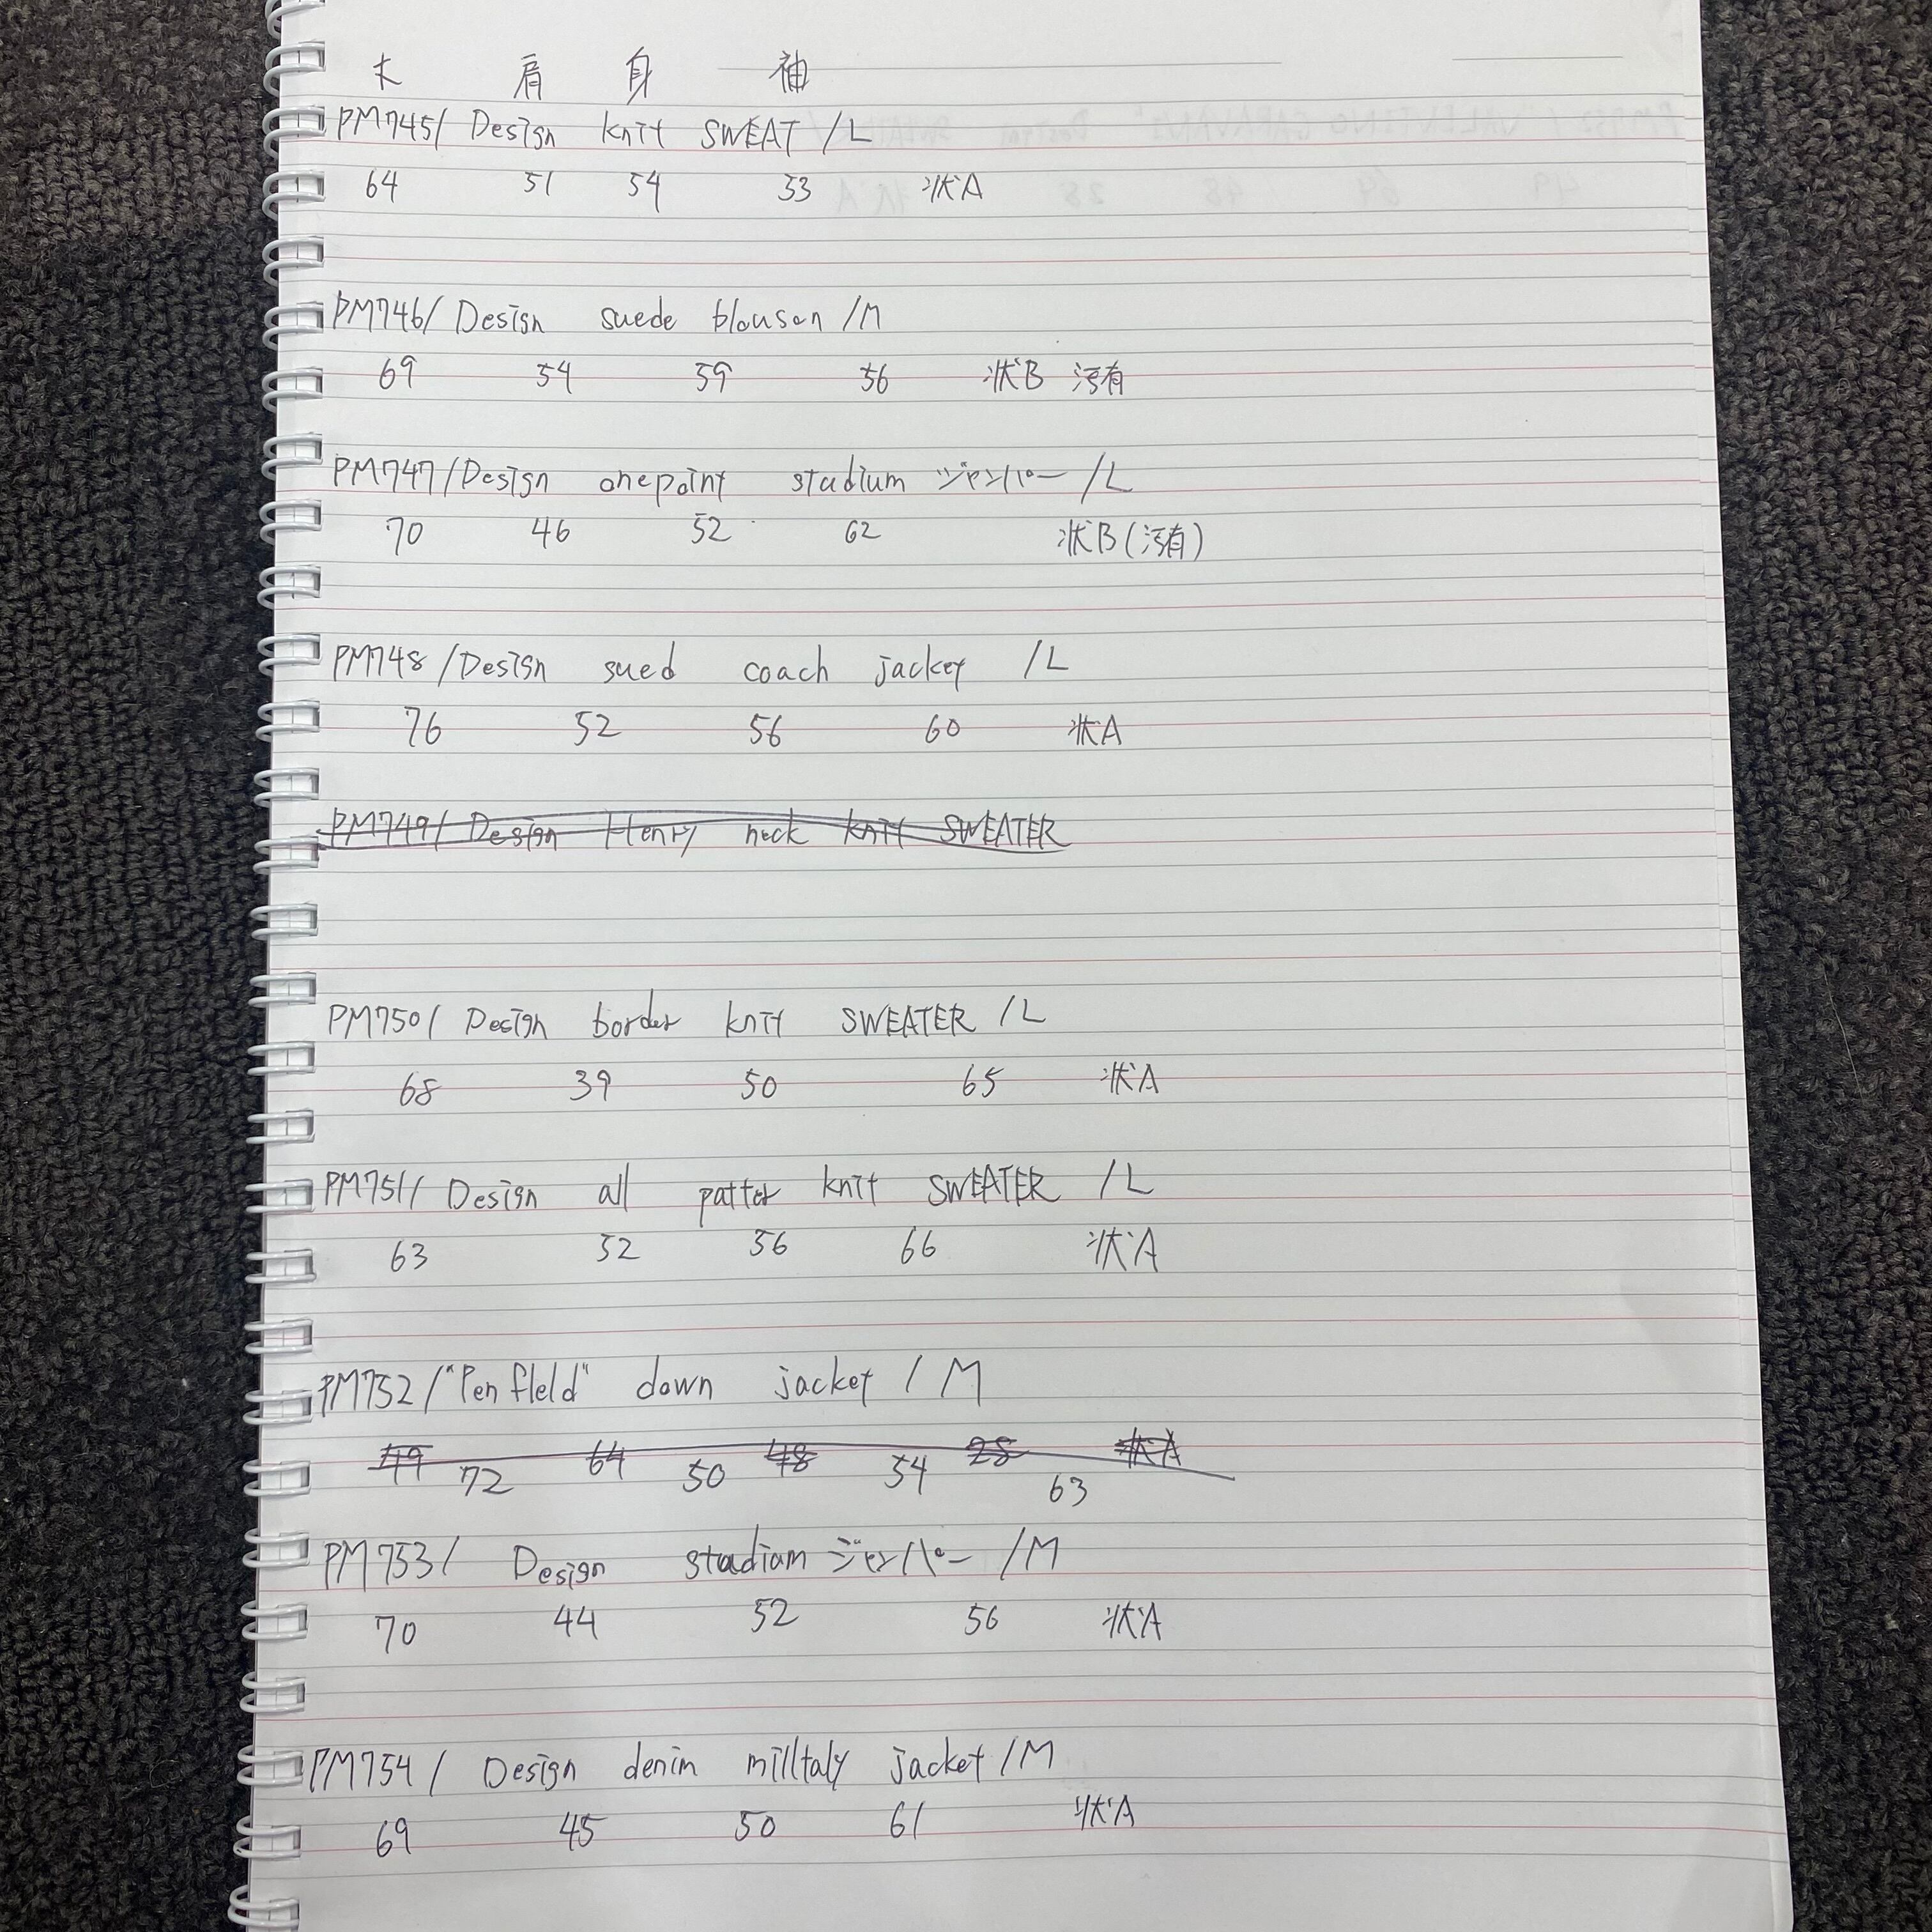 丈 肩 身 袖
PM745/ Design knit SWEAT /L
64 51 54 53 状A
PM746/ Design suede blouson /M
69 54 59 56 状B 汚有
PM747/Design onepoint stadium ジャンパー /L
70 46 52 62 状B(汚有)
PM748/Design sued coach jacket /L
76 52 56 60 状A
PM749/ Design Henry neck knit SWEATER
PM750/ Design border knit SWEATER /L
68 39 50 65 状A
PM751/ Design all patter knit SWEATER /L
63 52 56 66 状A
PM752/"Penfield" down jacket / M
49 64 48 28 状A
72 50 54 63
PM753/ Design stadium ジャンパー /M
70 44 52 56 状A
PM754/ Design denim milltaly jacket /M
69 45 50 61 状A